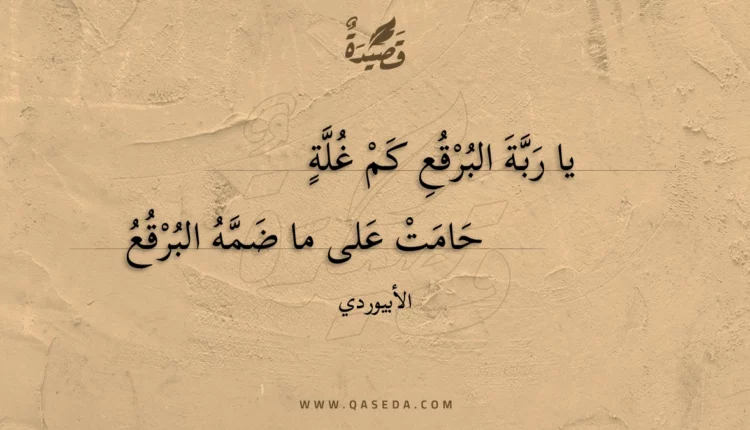 قَصِيدَةٌ
يا رَبَّةَ البُرْقُعِ كَمْ غُلَّةٍ
حَامَتْ عَلى ما ضَمَّهُ البُرْقُعُ
الأبيوردي
WWW.QASEDA.COM